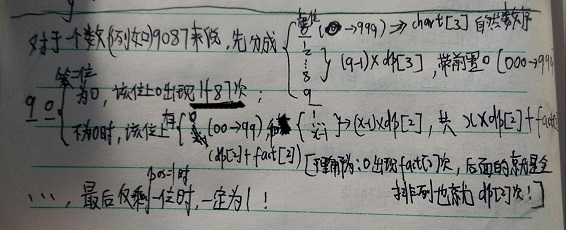 对于一个数(例如)9087来说,先分成 { 首位 0 (0→999) ⇒ chart[3] 自然数
1 2 ⋮ 8 } (9-1)×dp[3] ,带前置0 (000→999
9
9 0 { 第一位 为0,该位上0出现1+87次;
不为0时,该位上有 { 0 (00→99) 和 { 1 ⋮ x-1 } → (x-1)×dp[2],共 x×dp[2]+fact
(dp[2]+fact[2]) [理解为:0出现fact[2]次,后面的就是全
排列也就 dp[2]次!]
⋯,最后仅剩一位时,一定为1!
pos=1时